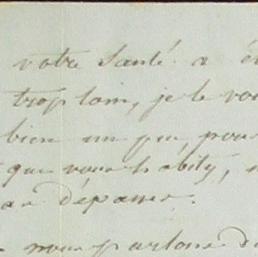 votre santé a é
trop loin, je le vou
bien un peu, pour
que vous habitez,
dépasser.
nous partons d